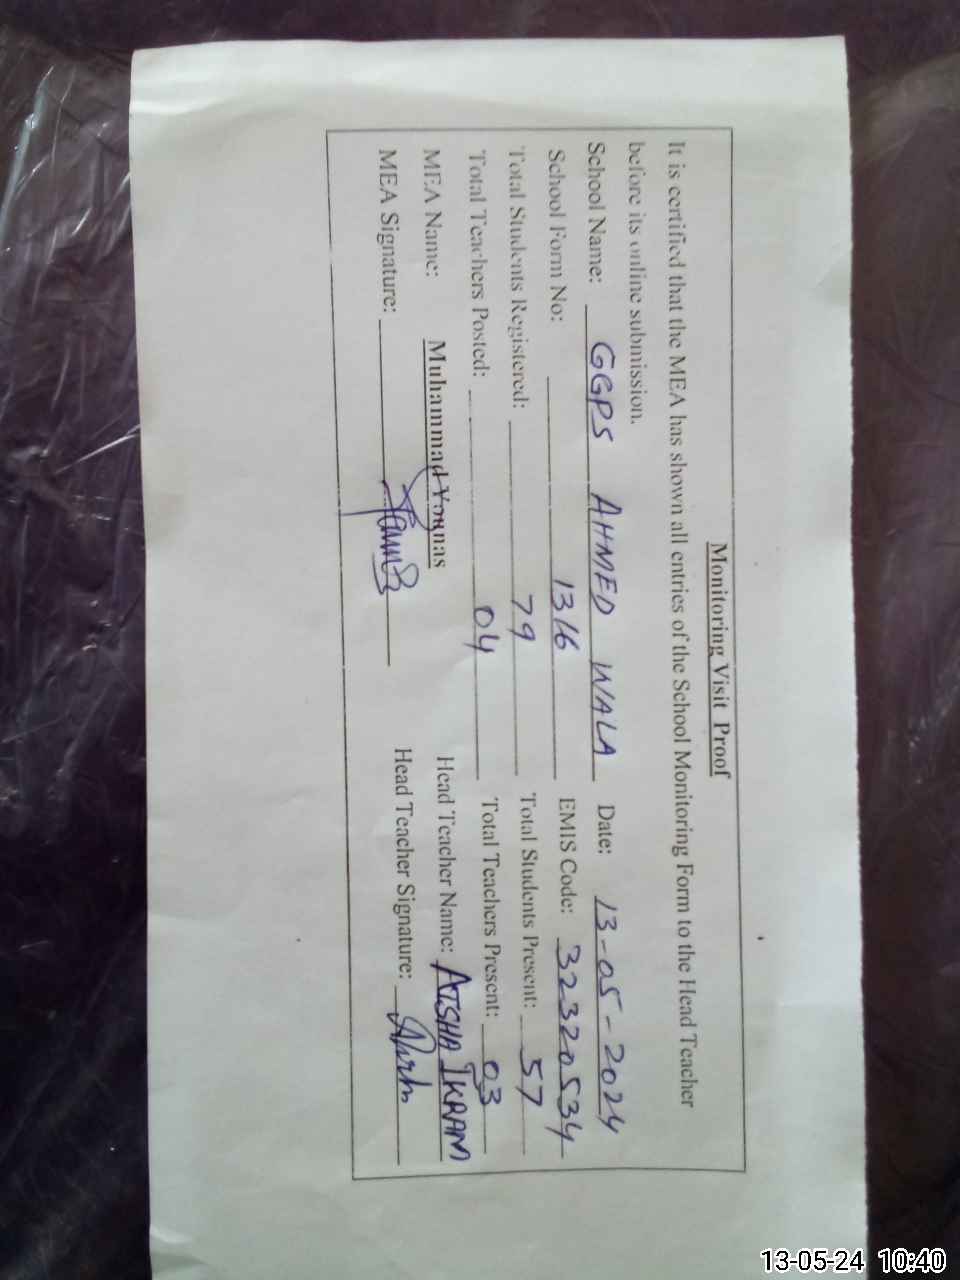 Monitoring Visit Proof
It is certified that the MEA has shown all entries of the School Monitoring Form to the Head Teacher
before its online submission.
School Name: GGPS AHMED WALA Date: 13-05-2024
School Form No: 1316 EMIS Code: 32320534
Total Students Registered: 79 Total Students Present: 57
Total Teachers Posted: 04 Total Teachers Present: 03
MEA Name: Muhammad Younas Head Teacher Name: AISHA IKRAM
MEA Signature: Head Teacher Signature:
13-05-24 10:40